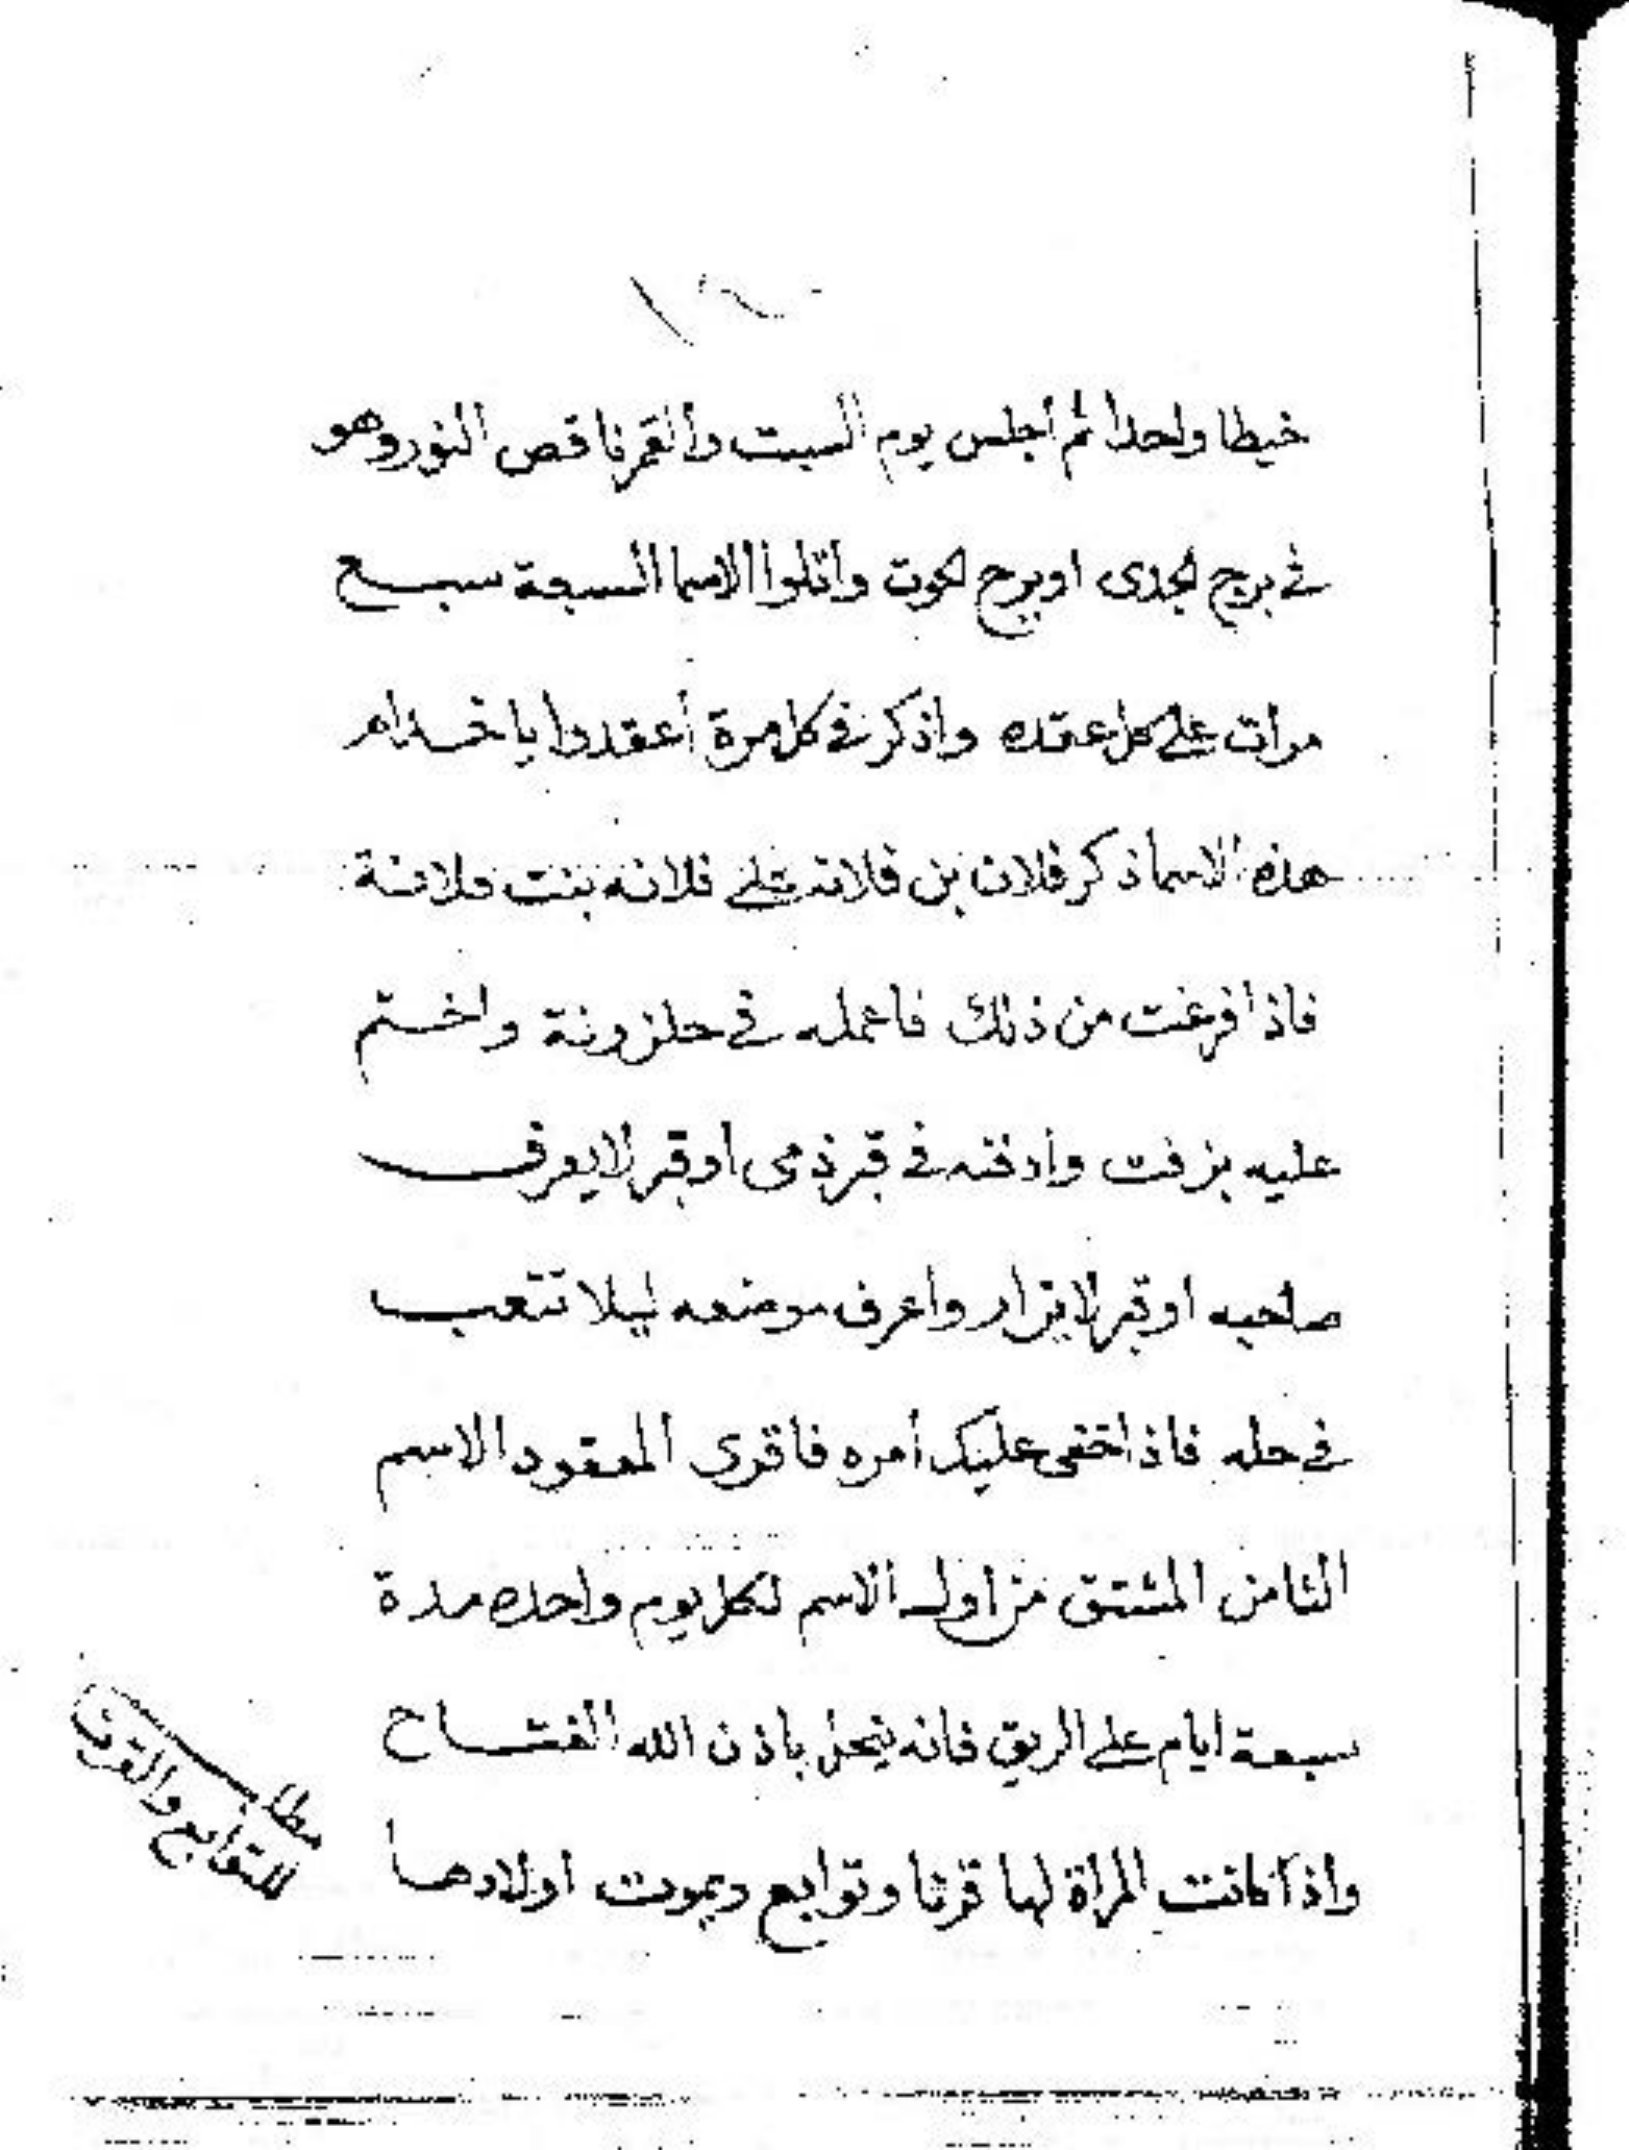 خيطا واحدا ثم أجلس يوم السبت والقمر ناقص النور وهو
في برج لجدى او برج لحوت واتلوا الاسما السبعة سبع
مرات على كل عقده واذكر في كل مرة أعقدوا يا خدام
هذه الاسما ذكر فلان بن فلانه على فلانه بنت فلانة
فاذا فرغت من ذلك فاعمله في حلزونة واختم
عليه بزفت وادفنه في قبر ذمى او قبر لا يعرف
صاحبه او قبر لا يزار واعرف موضعه ليلا تتعب
في حله فاذا خفى عليك أمره فاقرى المعقود الاسم
الثامن المشتق من اول الاسم لكل يوم واحده مدة
سبعة ايام على الريق فانه ينحل باذن الله الفتاح
مطلب
للتوابع والقرنا
واذا كانت المراة لها قرنا وتوابع ويموت اولادها